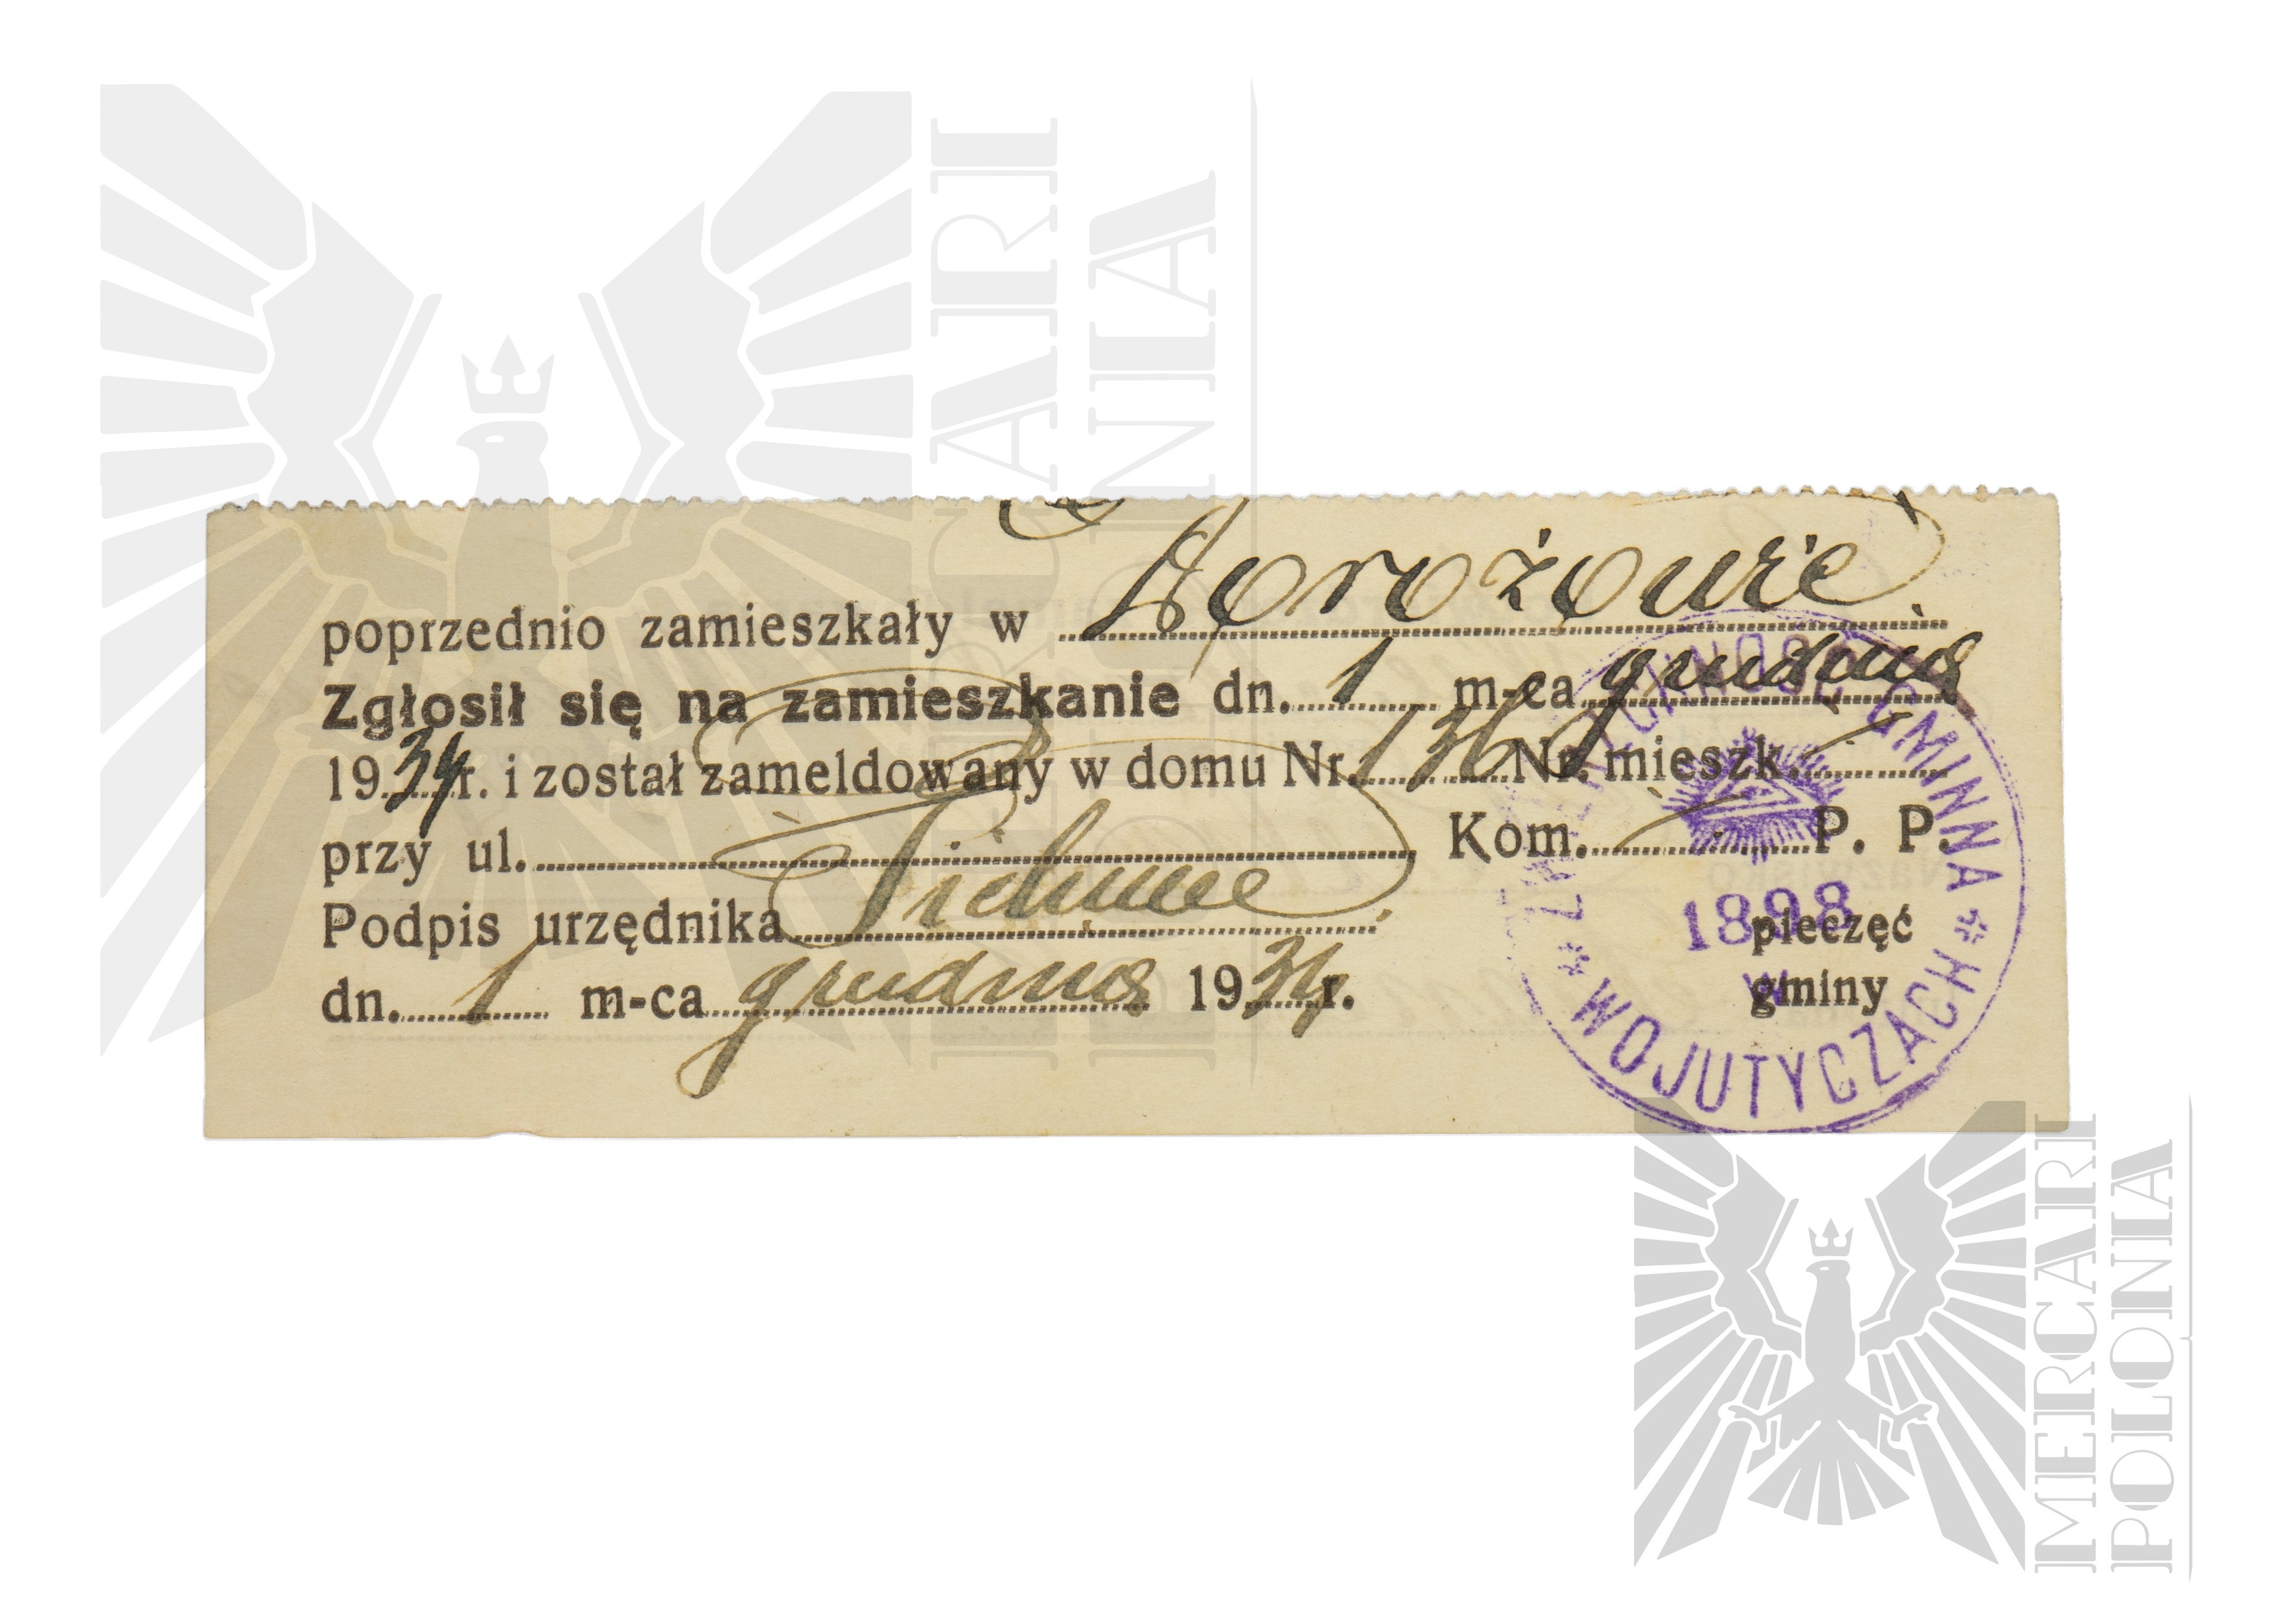 MERCARI
POLONIA
poprzednio zamieszkały w Dorożowie
Zgłosił się na zamieszkanie dn. 1 m-ca grudnia
1934 r. i został zameldowany w domu Nr. 136 Nr. mieszk.
przy ul. Kom. P. P.
Podpis urzędnika
dn. 1 m-ca grudnia 1934 r.
pieczęć
gminy
ZWIERZCHNOŚĆ GMINNA
1898
w
* WOJUTYCZACH *
MERCARI
POLONIA